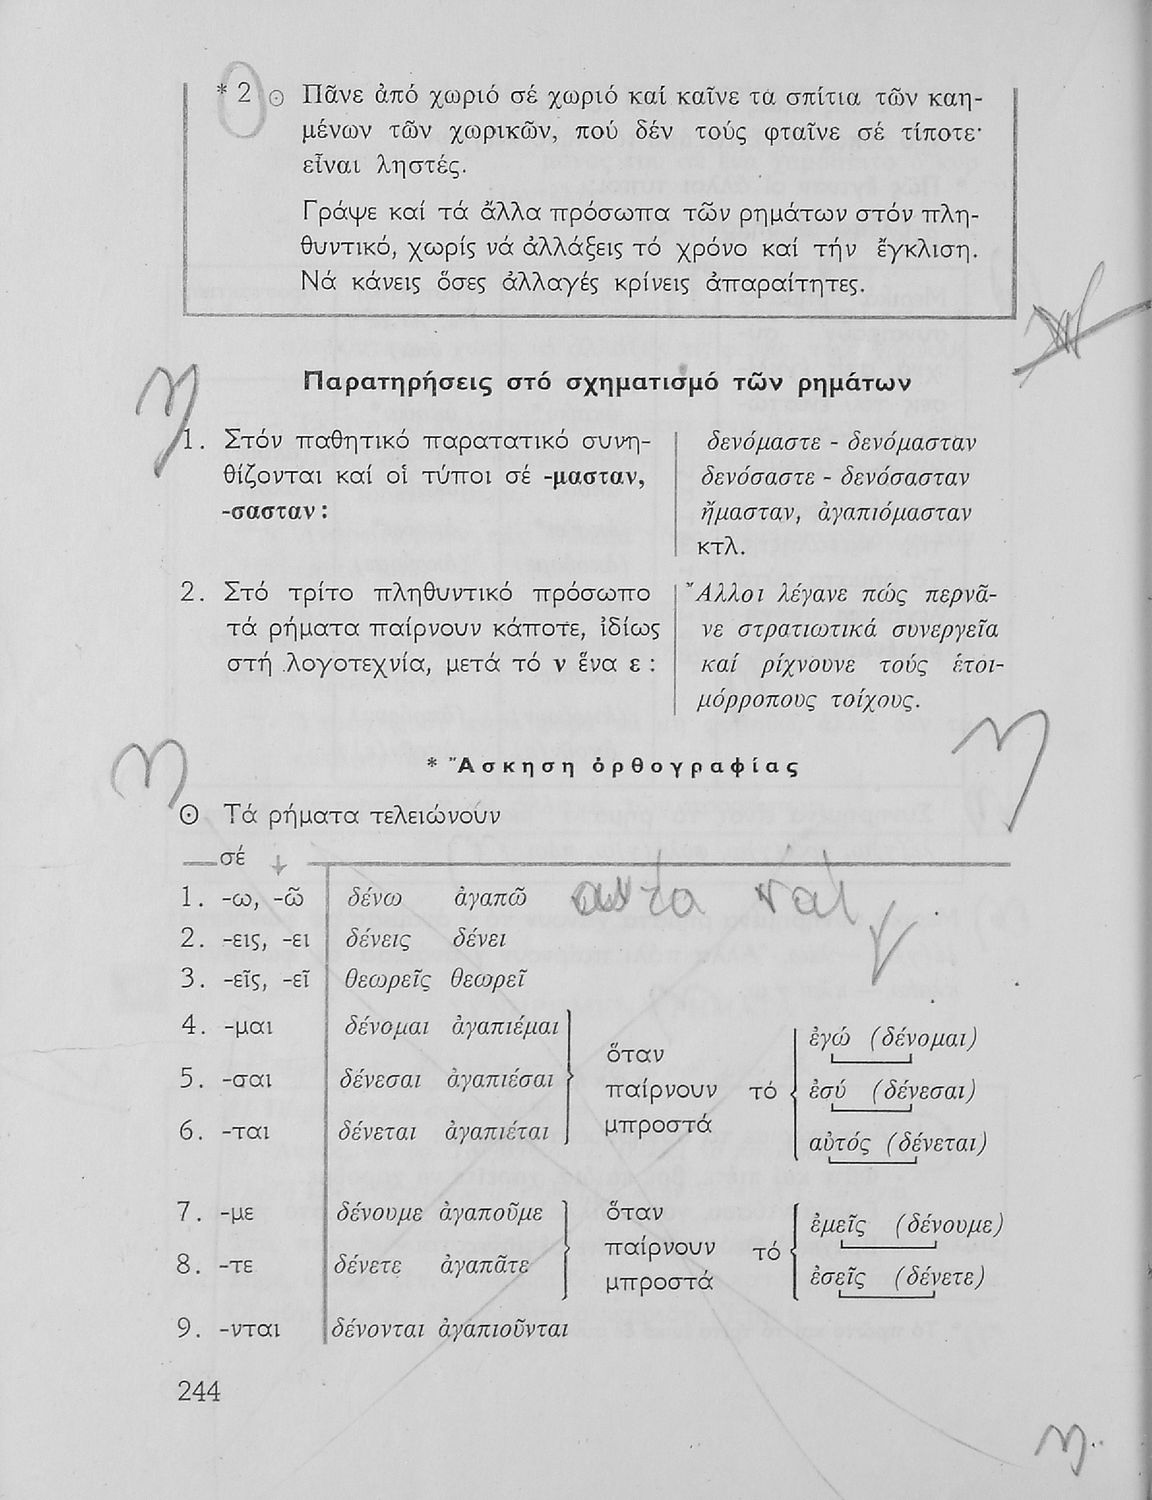 * 2 ⊙ Πᾶνε ἀπό χωριό σέ χωριό καί καῖνε τα σπίτια τῶν καη-
μένων τῶν χωρικῶν, πού δέν τούς φταῖνε σέ τίποτε·
εἶναι ληστές.
Γράψε καί τά ἄλλα πρόσωπα τῶν ρημάτων στόν πλη-
θυντικό, χωρίς νά ἀλλάξεις τό χρόνο καί τήν ἔγκλιση.
Νά κάνεις ὅσες ἀλλαγές κρίνεις ἀπαραίτητες.
Παρατηρήσεις στό σχηματισμό τῶν ρημάτων
1. Στόν παθητικό παρατατικό συνη-
θίζονται καί οἱ τύποι σέ -μασταν,
-σασταν:
δενόμαστε - δενόμασταν
δενόσαστε - δενόσασταν
ἤμασταν, ἀγαπιόμασταν
κτλ.
2. Στό τρίτο πληθυντικό πρόσωπο
τά ρήματα παίρνουν κάποτε, ἰδίως
στή λογοτεχνία, μετά τό ν ἕνα ε :
Ἄλλοι λέγανε πώς περνᾶ-
νε στρατιωτικά συνεργεῖα
καί ρίχνουνε τούς ἑτοι-
μόρροπους τοίχους.
* Ἄσκηση ὀρθογραφίας
⊙ Τά ρήματα τελειώνουν
σέ
1. -ω, -ῶ δένω ἀγαπῶ αυτό ναί
2. -εις, -ει δένεις δένει
3. -εῖς, -εῖ θεωρεῖς θεωρεῖ
4. -μαι δένομαι ἀγαπιέμαι
5. -σαι δένεσαι ἀγαπιέσαι
6. -ται δένεται ἀγαπιέται
ὅταν
παίρνουν τό
μπροστά
ἐγώ (δένομαι)
ἐσύ (δένεσαι)
αὐτός (δένεται)
7. -με δένουμε ἀγαποῦμε
8. -τε δένετε ἀγαπᾶτε
ὅταν
παίρνουν τό
μπροστά
ἐμεῖς (δένουμε)
ἐσεῖς (δένετε)
9. -νται δένονται ἀγαπιοῦνται
244